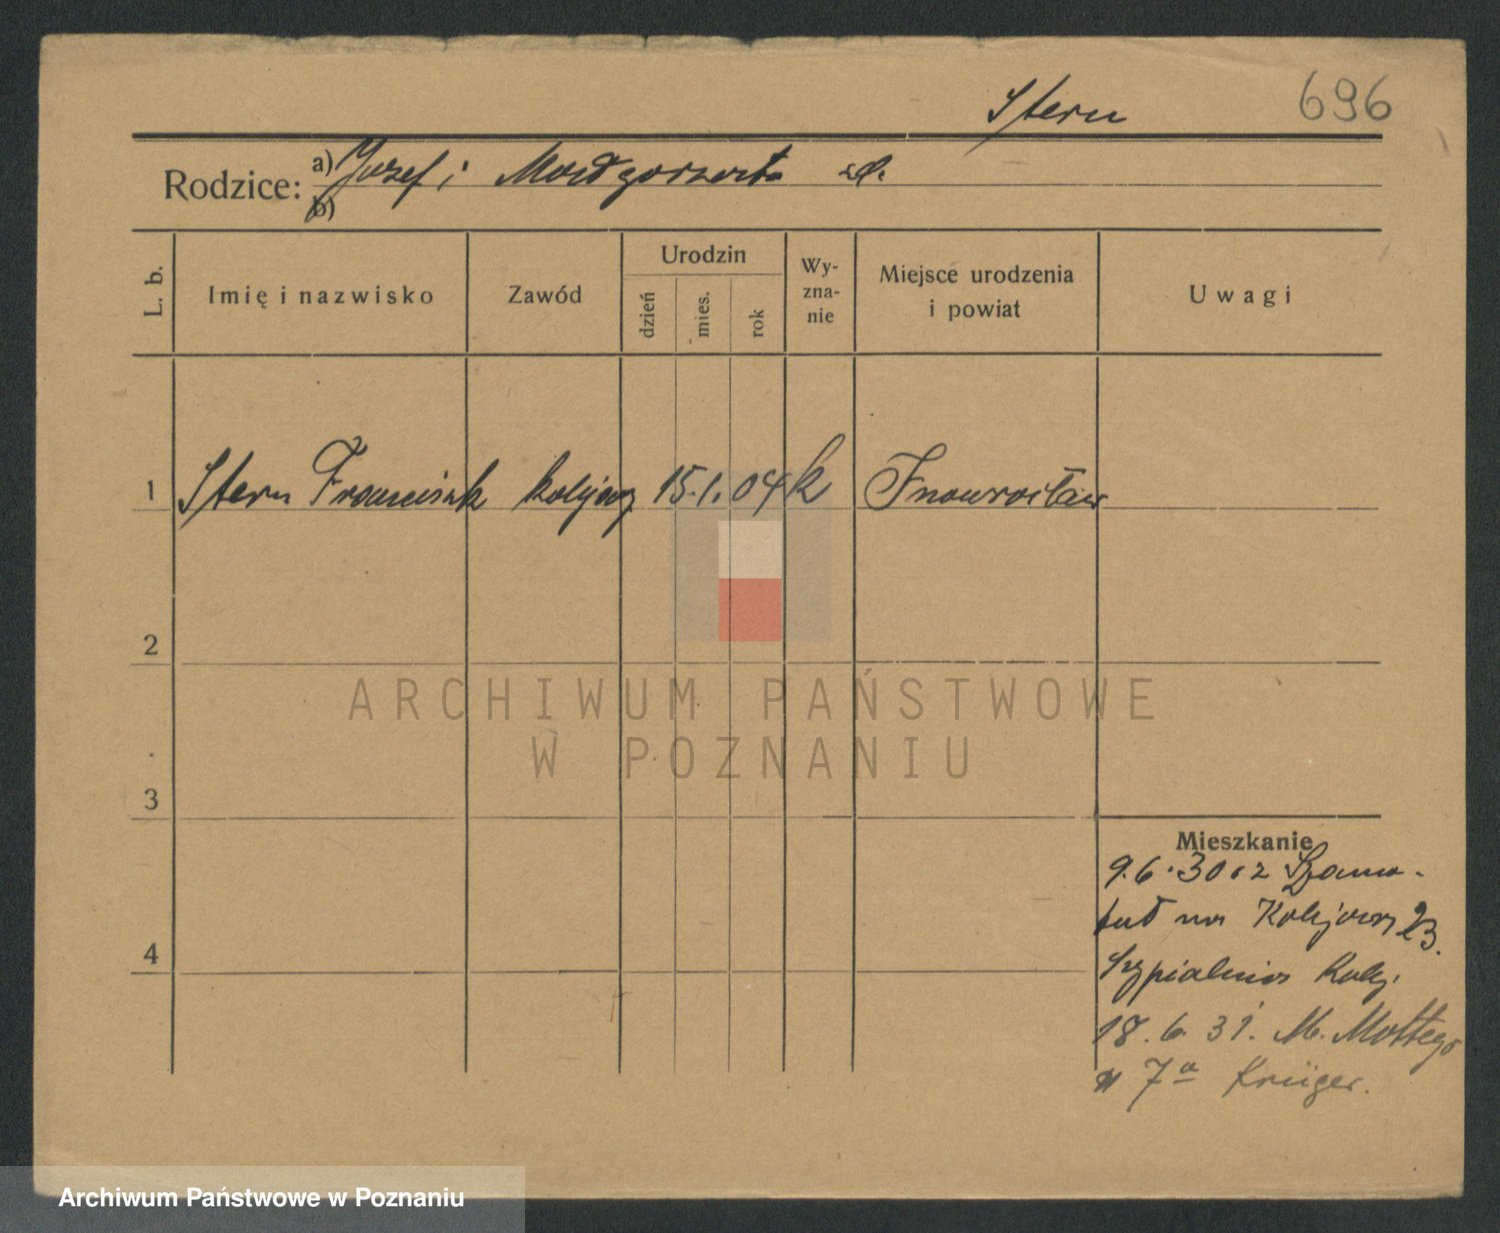 Stern
696
Rodzice: a) Józef i Małgorzata
b)
L. b.
Imię i nazwisko
Zawód
Urodzin
dzień
mies.
rok
Wy-
zna-
nie
Miejsce urodzenia
i powiat
Uwagi
1 Stern Franciszek kolejarz 15. 1. 04 k Inowrocław
2
ARCHIWUM PAŃSTWOWE
W POZNANIU
3
Mieszkanie
9.6.30 z Szamo-
tuł na Kolejową 23.
4
Sypialnia kolej.
18.6.31. M. Mottego
7a Krüger.
Archiwum Państwowe w Poznaniu